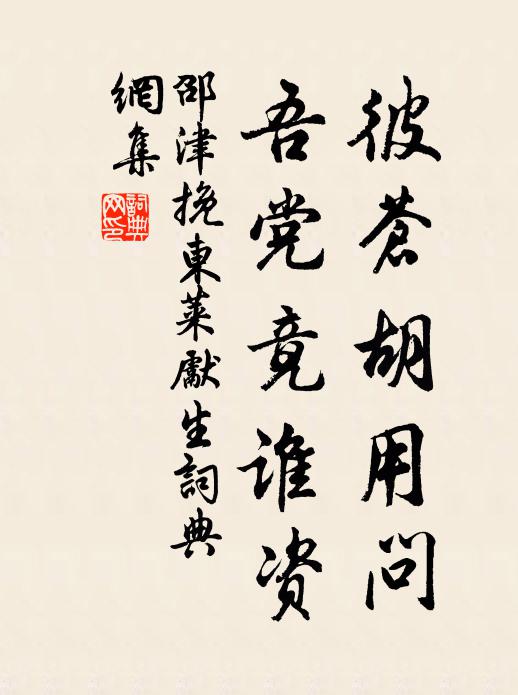 彼蒼胡用问
吾党竟谁资
邵津挽東萊獻生詞典
網集
詞典
网印